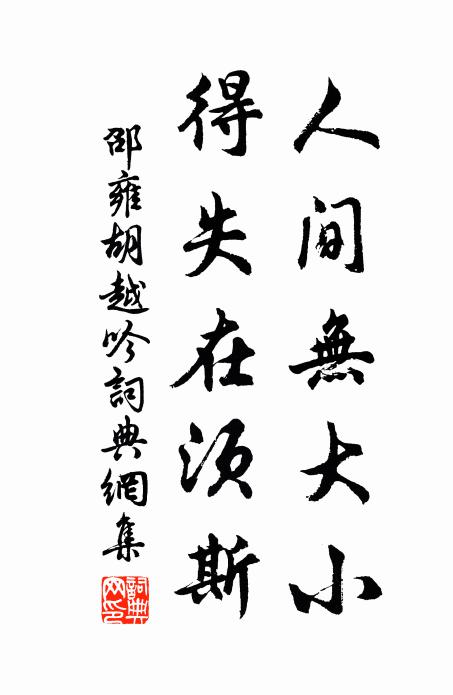 人間無大小
得失在須斯
邵雍胡越吟詞典網集
詞典網印